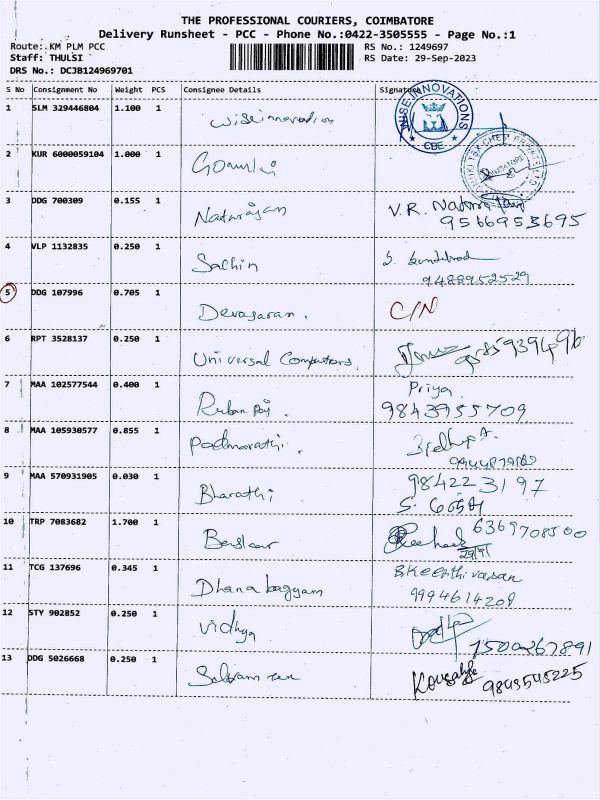 THE PROFESSIONAL COURIERS, COIMBATORE
Delivery Runsheet - PCC - Phone No.:0422-3505555 - Page No.:1
Route: KM PLM PCC
RS No.: 1249697
Staff: THULSI
RS Date: 29-Sep-2023
DRS No.: DCJB124969701
S No Consignment No Weight PCS Consignee Details Signature
1 SLM 329446804 1.100 1 Wiseinnovation
WISE INNOVATIONS
CBE
2 KUR 6000059104 1.000 1
3 DDG 700309 0.155 1 Natarajan V.R. Natarajan
9566953695
4 VLP 1132835 0.250 1 Sachin
9488952529
5 DDG 107996 0.705 1 Devasaran. C/N
6 RPT 3528137 0.250 1 Universal Computers.
7 MAA 102577544 0.400 1 Ruban Raj. Priya.
9843955709
8 MAA 105930577 0.855 1 Padmavathi.
9 MAA 570931905 0.030 1 Bharathi 9842223197
10 TRP 7083682 1.700 1 6369708500
11 TCG 137696 0.345 1 Dhanabagyam B.Keerthivasan
9994614209
12 STY 902852 0.250 1 Vidhya
7500267891
13 DDG 5026668 0.250 1 Kousalya 9843545225